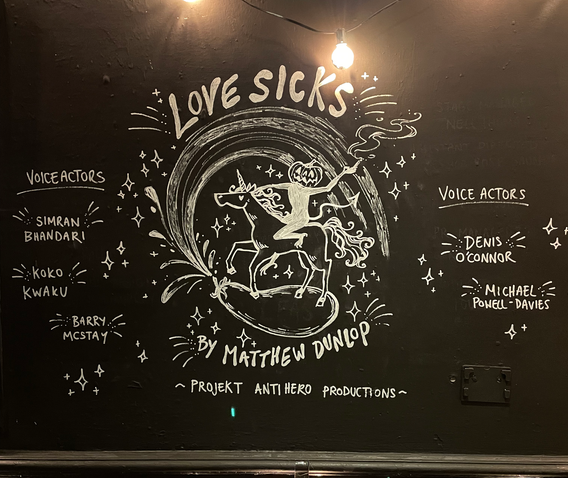 LOVE SICKS
VOICE ACTORS
SIMRAN
BHANDARI
KOKO
KWAKU
BARRY
MCSTAY
VOICE ACTORS
DENIS
O'CONNOR
MICHAEL
POWELL-DAVIES
BY MATTHEW DUNLOP
~ PROJEKT ANTIHERO PRODUCTIONS ~